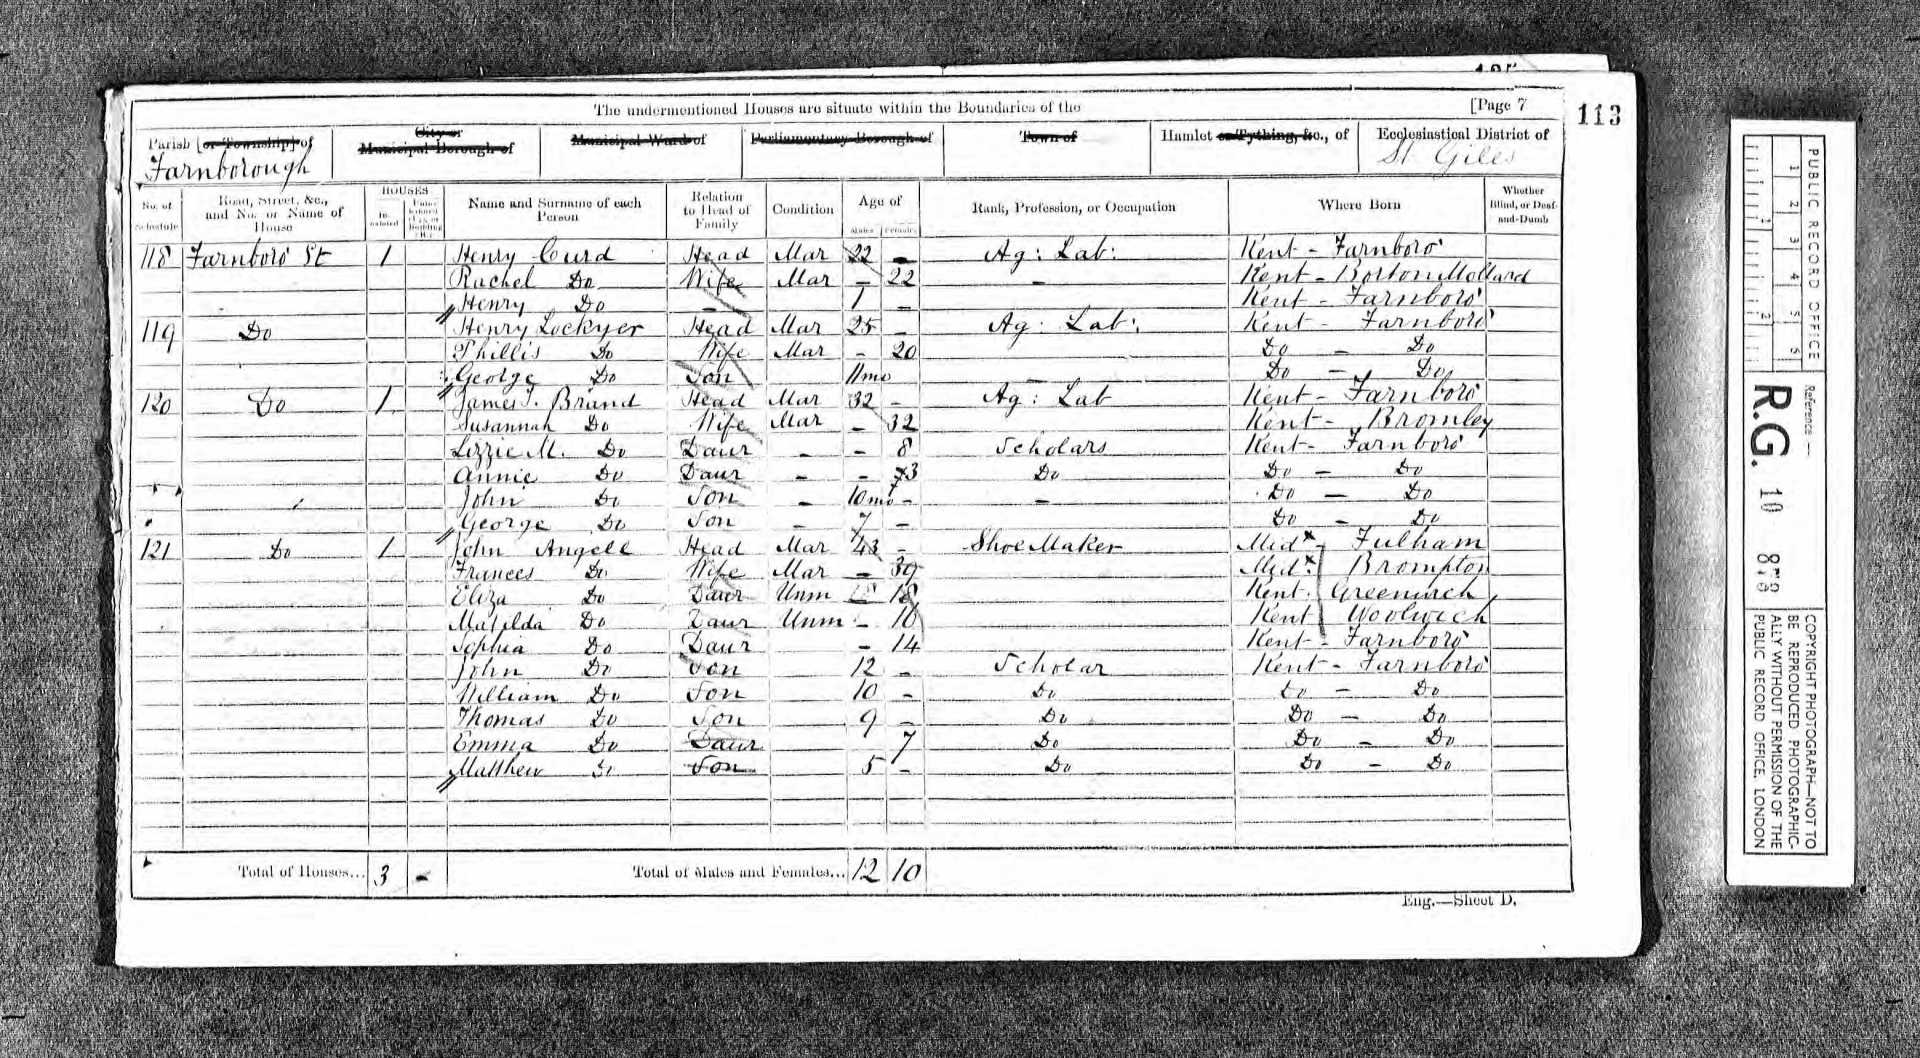 The undermentioned Houses are situate within the Boundaries of the [Page 7
113
Parish [or Township] of City or Municipal Borough of Municipal Ward of Parliamentary Borough of Town of Hamlet or Tything, &c., of Ecclesiastical District of
Farnborough St Giles
No. of Schedule Road, Street, &c., and No. or Name of House HOUSES Inhabited Name and Surname of each Person Relation to Head of Family Condition Age of Males Females Rank, Profession, or Occupation Where Born Whether Blind, or Deaf-and-Dumb
118 Farnboro' St 1 Henry Curd Head Mar 22 - Ag: Lab: Kent - Farnboro'
Rachel Do Wife Mar - 22 - Kent -
Henry Do - 1 - Kent - Farnboro'
119 Do Henry Lockyer Head Mar 25 - Ag: Lab: Kent - Farnboro'
Phillis Do Wife Mar - 20 Do - Do
George Do Son 11mo - Do - Do
120 Do 1 James J. Brand Head Mar 32 - Ag: Lab Kent - Farnboro'
Susannah Do Wife Mar - 32 Kent - Bromley
Lizzie M. Do Daur - - 8 Scholars Kent - Farnboro'
Annie Do Daur - - 3 Do Do - Do
John Do Son - 10mo - - Do - Do
George Do Son - 7 - Do - Do
121 Do 1 John Angell Head Mar 43 - Shoe Maker Midx - Fulham
Frances Do Wife Mar - 39 Midx. Brompton
Eliza Do Daur Unm 18 Kent. Greenwich
Matilda Do Daur Unm - 16 Kent Woolwich
Sophia Do Daur - 14 Kent - Farnboro'
John Do Son 12 - Scholar Kent - Farnboro'
William Do Son 10 - Do Do - Do
Thomas Do Son 9 - Do Do - Do
Emma Do Daur 7 Do Do - Do
Matthew Do Son 5 - Do Do - Do
Total of Houses... 3 - Total of Males and Females... 12 10
Eng.—Sheet D.
PUBLIC RECORD OFFICE
1 2 3 4 5 6
1 2
Reference:—
R.G. 10
COPYRIGHT PHOTOGRAPH—NOT TO
BE REPRODUCED PHOTOGRAPHIC-
ALLY WITHOUT PERMISSION OF THE
PUBLIC RECORD OFFICE, LONDON